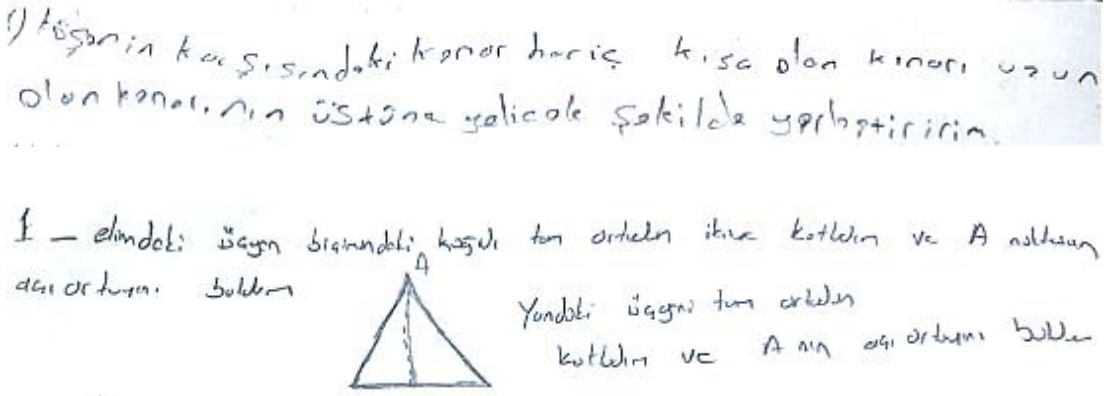 1) köşenin karşısındaki kenar hariç kısa olan kenarı uzun
olan kenarının üstüne gelicek şekilde yerleştiririm.
1 – elimdeki üçgen biçimindeki kağıdı tam ortadan ikiye katladım ve A noktasının
açı ortayını buldum
A
Yandaki üçgeni tam ortadan
katladım ve A nın açı ortayını buldum